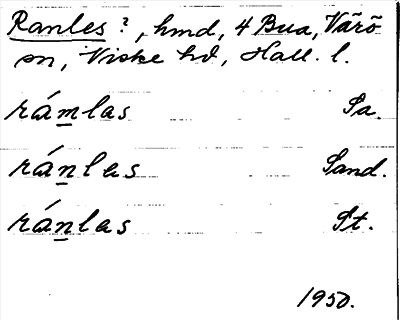 Ranles ?, hmd, 4 Bua, Värö
sn, Viske hd, Hall. l.
rámlas Sa.
ránlas Sand.
ránlas St.
1950.